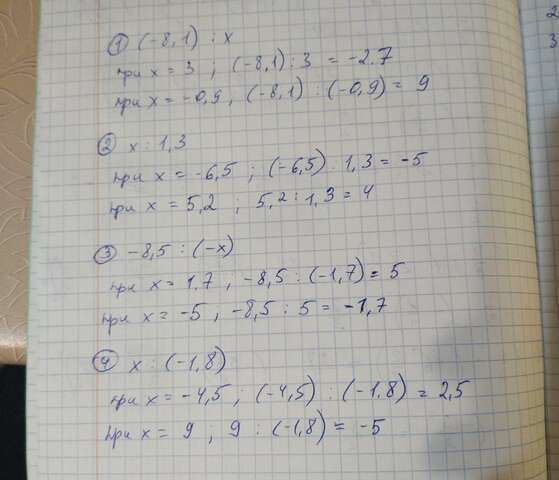 ① (-8,1) : x
при x = 3 ; (-8,1) : 3 = -2.7
при x = -0,9, (-8,1) : (-0,9) = 9
② x : 1,3
при x = -6,5 ; (-6,5) : 1,3 = -5
при x = 5,2 ; 5,2 : 1,3 = 4
③ -8,5 : (-x)
при x = 1,7 ; -8,5 : (-1,7) = 5
при x = -5 ; -8,5 : 5 = -1,7
④ x : (-1,8)
при x = -4,5 ; (-4,5) : (-1,8) = 2,5
при x = 9 ; 9 : (-1,8) = -5
2
3